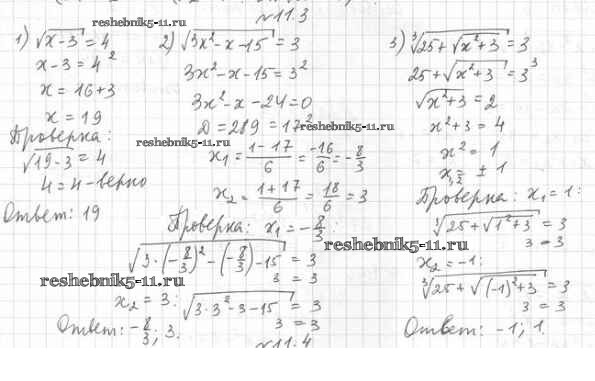 №11.3
reshebnik5-11.ru
1) √x-3 = 4
x-3=4²
x = 16+3
x = 19
Проверка:
√19-3 = 4
4=4-верно
Ответ: 19
2) √3x²-x-15 = 3
3x²-x-15=3²
3x²-x-24=0
D=289=17²
reshebnik5-11.ru
x₁ = 1-17/6 = -16/6 = -8/3
x₂ = 1+17/6 = 18/6 = 3
Проверка: x₁ = -8/3:
√3·(-8/3)²-(-8/3)-15 = 3
3 = 3
reshebnik5-11.ru
x₂ = 3: √3·3²-3-15 = 3
3 = 3
Ответ: -8/3; 3.
reshebnik5-11.ru
3) ³√25+√x²+3 = 3
25+√x²+3 = 3³
√x²+3 = 2
x²+3 = 4
x² = 1
x₁,₂ = ± 1
Проверка: x₁=1:
³√25+√1²+3 = 3
3 = 3
reshebnik5-11.ru
x₂ = -1:
³√25+√(-1)²+3 = 3
3 = 3
Ответ: -1; 1.
reshebnik5-11.ru
№11.4